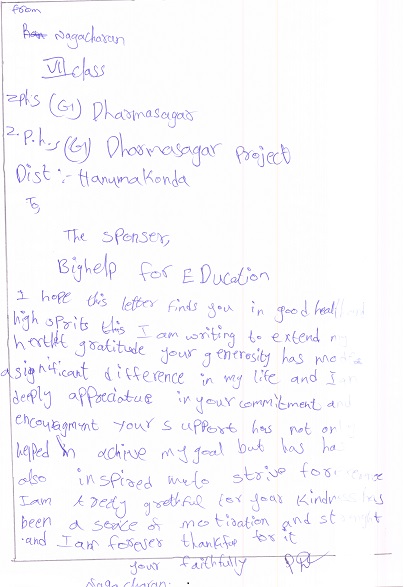 from
Nagacharan
VII class
zphs (G) Dharmasagar
z.p.h.s (G) Dharmasagar project
Dist :- Hanumakonda
To,
The sponser,
Bighelp for EDucation
I hope this letter finds you in good heal
high sprits this I am writing to extend
gratitude your generosity has
a significant difference in my life and I
deeply in your commitment a
encouragment your support has not
helped in achive my goal but has ha
also inspired me to strive for
I am grethful for your kindness
been a of and
and I am forever thankful for it
your faithfully
Nagacharan.